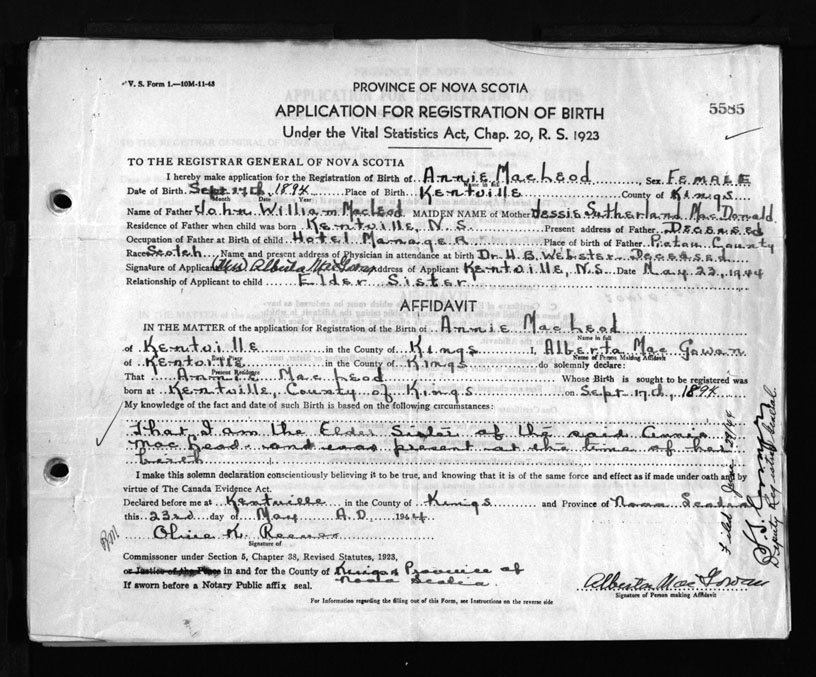 V. S. Form 1.—10M-11-43
PROVINCE OF NOVA SCOTIA
APPLICATION FOR REGISTRATION OF BIRTH
5585
Under the Vital Statistics Act, Chap. 20, R. S. 1923
TO THE REGISTRAR GENERAL OF NOVA SCOTIA
I hereby make application for the Registration of Birth of Annie MacLeod, Sex FEMALE
Name in full
Date of Birth Sept 17th, 1894 Place of Birth Kentville County of Kings
Month Date Year
Name of Father John William MacLeod MAIDEN NAME of Mother Jessie Sutherland MacDonald
Residence of Father when child was born Kentville, N.S. Present address of Father Deceased
Occupation of Father at Birth of child Hotel Manager Place of birth of Father Pictou County
Race Scotch Name and present address of Physician in attendance at birth Dr. H.B. Webster Deceased
Signature of Applicant Mrs. Alberta MacGowan Address of Applicant Kentville, N.S. Date May 23, 1944
Relationship of Applicant to child Elder Sister
AFFIDAVIT
IN THE MATTER of the application for Registration of the Birth of Annie MacLeod
Name in full
of Kentville in the County of Kings I, Alberta Mac Gowan
Birth Place Name of Person Making Affidavit
of Kentville in the County of Kings do solemnly declare:
Present Residence
That Annie MacLeod Whose Birth is sought to be registered was
born at Kentville, County of Kings on Sept 17th, 1894
My knowledge of the fact and date of such Birth is based on the following circumstances:
That I am the Elder Sister of the said Annie
MacLeod and was present at the time of her
birth
I make this solemn declaration conscientiously believing it to be true, and knowing that it is of the same force and effect as if made under oath and by
virtue of The Canada Evidence Act.
Declared before me at Kentville in the County of Kings and Province of Nova Scotia
this 23rd day of May A.D. 1944
Olivia K. Reeves
Signature of
Commissioner under Section 5, Chapter 38, Revised Statutes, 1923,
or Justice of the Peace in and for the County of Kings Province of
Nova Scotia.
If sworn before a Notary Public affix seal.
Alberta MacGowan
Signature of Person making Affidavit
For Information regarding the filling out of this Form, see Instructions on the reverse side
Filed
Deputy Registrar General